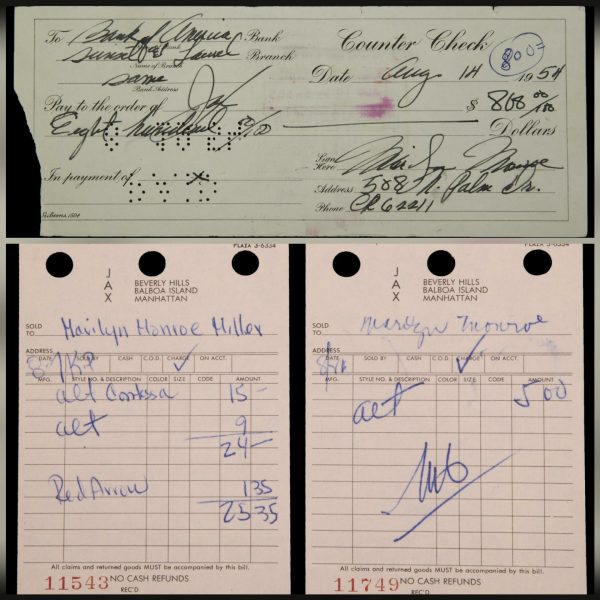 To Bank of America Bank
Sunset & Laurel Branch
Name of Branch
same
Bank Address
Counter Check
800
Date Aug 14 1954
Pay to the order of Jax $ 800 00/100
Eight hundred 00/100 Dollars
In payment of
Sign Here Marilyn Monroe
Address 508 N. Palm Dr.
Phone CR 62211
PLAZA 3-6334
JAX
BEVERLY HILLS
BALBOA ISLAND
MANHATTAN
SOLD TO Marilyn Monroe Miller
ADDRESS
DATE SOLD BY CASH C.O.D. CHARGE ON ACCT.
✓
MFG. STYLE NO. & DESCRIPTION COLOR SIZE CODE AMOUNT
alt Contessa 15-
alt 9
24-
Red Arrow 1 35
25 35
All claims and returned goods MUST be accompanied by this bill.
11543 NO CASH REFUNDS
REC'D
PLAZA 3-6334
JAX
BEVERLY HILLS
BALBOA ISLAND
MANHATTAN
SOLD TO Marilyn Monroe
ADDRESS
DATE SOLD BY CASH C.O.D. CHARGE ON ACCT.
✓
MFG. STYLE NO. & DESCRIPTION COLOR SIZE CODE AMOUNT
alt 5 00
All claims and returned goods MUST be accompanied by this bill.
11749 NO CASH REFUNDS
REC'D